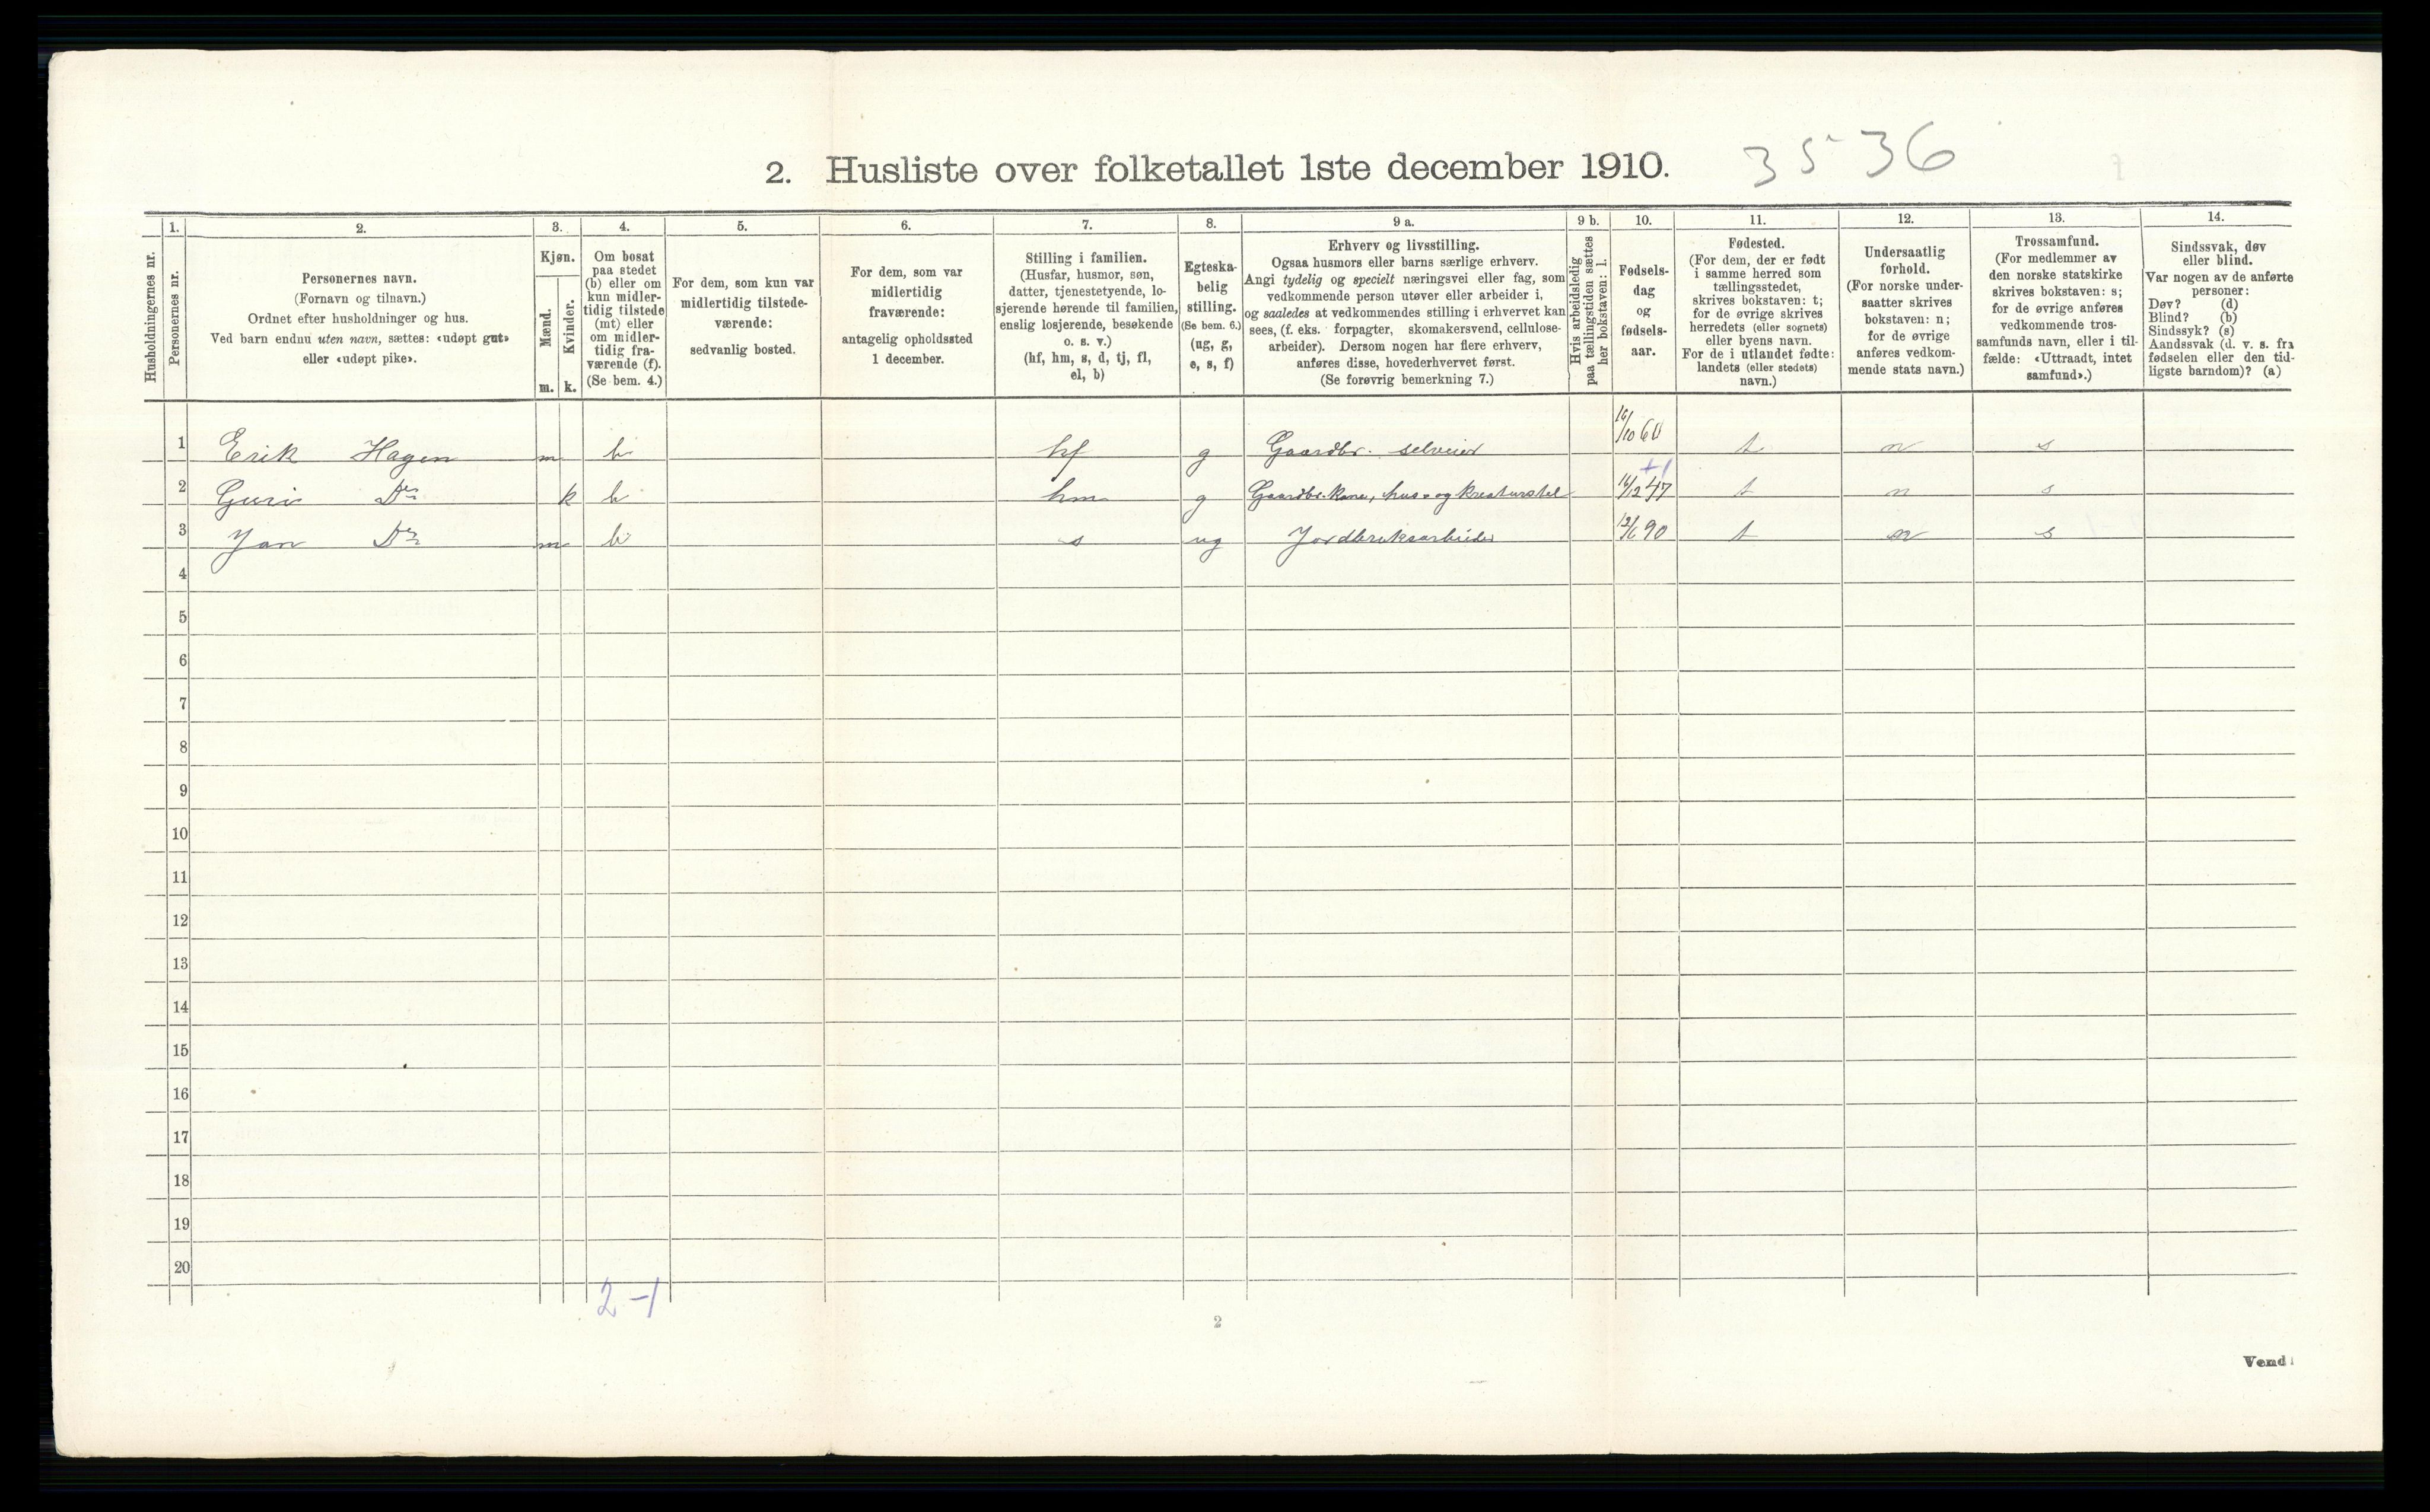 2. Husliste over folketallet 1ste december 1910. 35-36
Husholdningernes nr.
1.
Personernes nr.
2.
Personernes navn.
(Fornavn og tilnavn.)
Ordnet efter husholdninger og hus.
Ved barn endnu uten navn, sættes: «udøpt gut»
eller «udøpt pike».
3.
Kjøn.
Mænd.
m.
Kvinder.
k.
4.
Om bosat
paa stedet
(b) eller om
kun midler-
tidig tilstede
(mt) eller
om midler-
tidig fra-
værende (f).
(Se bem. 4.)
5.
For dem, som kun var
midlertidig tilstede-
værende:
sedvanlig bosted.
6.
For dem, som var
midlertidig
fraværende:
antagelig opholdssted
1 december.
7.
Stilling i familien.
(Husfar, husmor, søn,
datter, tjenestetyende, lo-
sjerende hørende til familien,
enslig losjerende, besøkende
o. s. v.)
(hf, hm, s, d, tj, fl,
el, b)
8.
Egteska-
belig
stilling.
(Se bem. 6.)
(ug, g,
e, s, f)
9 a.
Erhverv og livsstilling.
Ogsaa husmors eller barns særlige erhverv.
Angi tydelig og specielt næringsvei eller fag, som
vedkommende person utøver eller arbeider i,
og saaledes at vedkommendes stilling i erhvervet kan
sees, (f. eks. forpagter, skomakersvend, cellulose-
arbeider). Dersom nogen har flere erhverv,
anføres disse, hovederhvervet først.
(Se forøvrig bemerkning 7.)
9 b.
Hvis arbeidsledig
paa tællingstiden sættes
her bokstaven: l.
10.
Fødsels-
dag
og
fødsels-
aar.
11.
Fødested.
(For dem, der er født
i samme herred som
tællingsstedet,
skrives bokstaven: t;
for de øvrige skrives
herredets (eller sognets)
eller byens navn.
For de i utlandet fødte:
landets (eller stedets)
navn.)
12.
Undersaatlig
forhold.
(For norske under-
saatter skrives
bokstaven: n;
for de øvrige
anføres vedkom-
mende stats navn.)
13.
Trossamfund.
(For medlemmer av
den norske statskirke
skrives bokstaven: s;
for de øvrige anføres
vedkommende tros-
samfunds navn, eller i til-
fælde: «Uttraadt, intet
samfund».)
14.
Sindssvak, døv
eller blind.
Var nogen av de anførte
personer:
Døv? (d)
Blind? (b)
Sindssyk? (s)
Aandssvak (d. v. s. fra
fødselen eller den tid-
ligste barndom)? (a)
1 Erik Hagen m b hf g Gaardbr. selveier 10 60 t n s
+1
2 Guri Do k b hm g Gaardbr.kone, hus- og kreaturstel 16/12 47 t n s
3 Jan Do m b s ug Jordbruksarbeider 12/6 90 t n s
4
5
6
7
8
9
10
11
12
13
14
15
16
17
18
19
20
2-1
2
Vend!